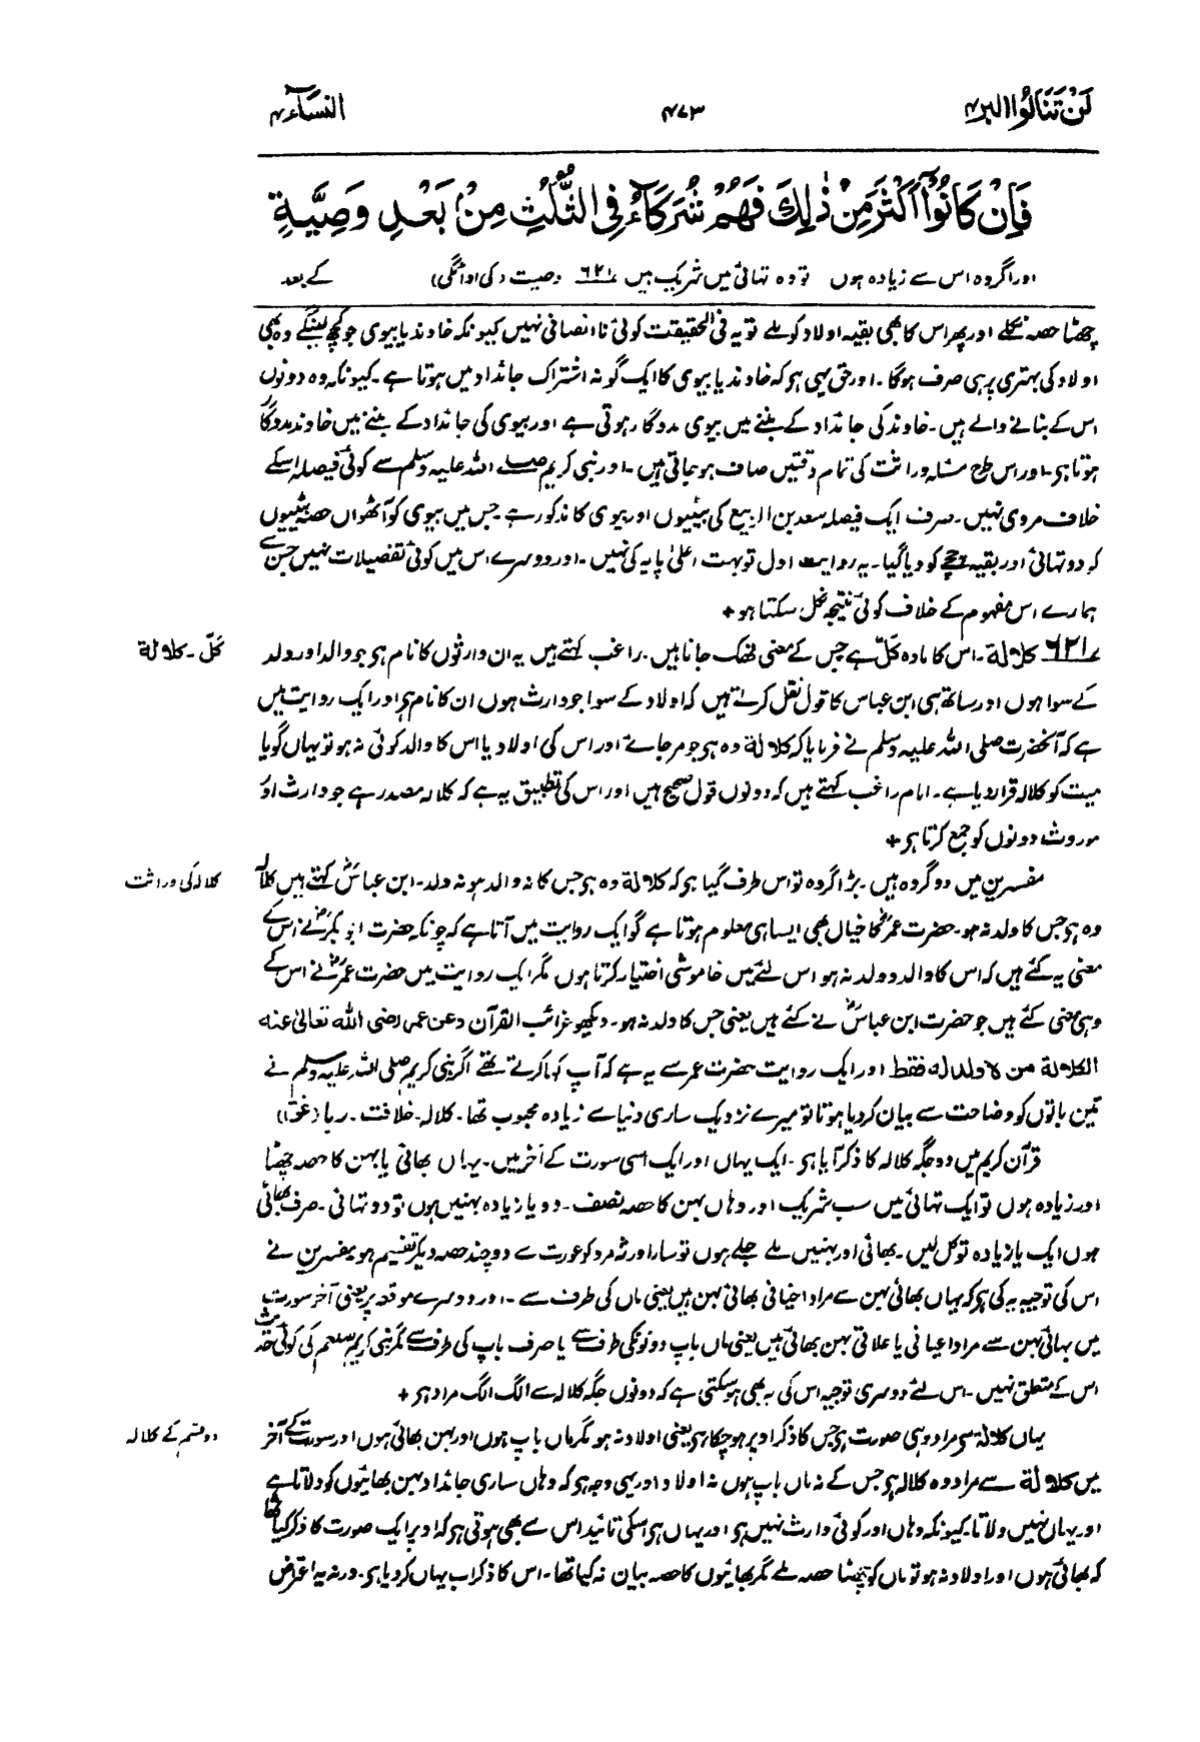 لَنْ تَنَالُوا البر۴
۴۷۳
النسَآء۴
فَاِنْ كَانُوْۤا اَكْثَرَ مِنْ ذٰلِكَ فَهُمْ شُرَكَآءُ فِى الثُّلُثِ مِنْۢ بَعْدِ وَصِيَّةٍ
اور اگر وہ اس سے زیادہ ہوں تو وہ تہائی میں شریک ہیں ۶۲۱ وصیت (کی ادائگی) کے بعد
چھٹا حصہ نکلے اور پھر اس کا بھی بقیہ اولاد کو ملے تو یہ فی الحقیقت کوئی ناانصافی نہیں کیونکہ خاوند یا بیوی جو کچھ لینگے وہ بھی
اولاد کی بہتری پر ہی صرف ہوگا۔ اور حق یہی ہو کہ خاوند یا بیوی کا ایک گونہ اشتراک جائداد میں ہوتا ہے۔ کیونکہ وہ دونوں
اس کے بنانے والے ہیں۔ خاوند کی جائداد کے بننے میں بیوی مددگار ہوتی ہے اور بیوی کی جائداد کے بننے میں خاوند مددگار
ہوتا ہو۔ اور اس طرح مسئلہ وراثت کی تمام دقتیں صاف ہو جاتی ہیں۔ اور نبی کریم صلے اللہ علیہ وسلم سے کوئی فیصلہ اسکے
خلاف مروی نہیں۔ صرف ایک فیصلہ سعد بن الربیع کی بیٹیوں اور بیوی کا مذکور ہے جس میں بیوی کو آٹھواں حصہ بیٹیوں
کو دو تہائی اور بقیہ چچے کو دیا گیا۔ یہ روایت اول تو بہت اعلیٰ پایہ کی نہیں۔ اور دوسرے اس میں کوئی تفصیلات نہیں جن سے
ہمارے اس مفہوم کے خلاف کوئی نتیجہ نکل سکتا ہو +
۶۲۱ کلالة۔ اس کا مادہ کَلّ ہے جس کے معنی تھک جانا ہیں۔ راغب کہتے ہیں یہ ان وارثوں کا نام ہو جو والد اور ولد
کَلّ۔ کلالة
کے سوا ہوں اور ساتھ ہی ابن عباس کا قول نقل کرتے ہیں کہ اولاد کے سوا جو وارث ہوں ان کا نام ہو اور ایک روایت میں
ہے کہ آنحضرت صلی اللہ علیہ وسلم نے فرمایا کہ کلالة وہ ہو جو مر جائے اور اس کی اولاد یا اس کا والد کوئی نہ ہو تو یہاں گویا
میت کو کلالہ قرار دیا ہے۔ امام راغب کہتے ہیں کہ دونوں قول صحیح ہیں اور اس کی تطبیق یہ ہے کہ کلالہ مصدر ہے جو وارث اور
موروث دونوں کو جمع کرتا ہو +
مفسرین میں دو گروہ ہیں۔ بڑا گروہ تو اس طرف گیا ہو کہ کلالة وہ ہو جس کا نہ والد ہو نہ ولد۔ ابن عباسؓ کہتے ہیں کلالہ
کلالہ کی وراثت
وہ ہو جس کا ولد نہ ہو۔ حضرت عمرؓ کا خیال بھی ایسا ہی معلوم ہوتا ہے گو ایک روایت میں آتا ہے کہ چونکہ حضرت ابوبکرؓ نے اس کے
معنی یہ کئے ہیں کہ اس کا والد و ولد نہ ہو اس لئے میں خاموشی اختیار کرتا ہوں مگر ایک روایت میں حضرت عمرؓ نے اس کے
وہی معنی کئے ہیں جو حضرت ابن عباسؓ نے کئے ہیں یعنی جس کا ولد نہ ہو۔ دیکھو غرائب القرآن وعن عمر رضی الله تعالیٰ عنه
الکلالة من لا ولد له فقط اور ایک روایت حضرت عمر سے یہ ہے کہ آپ کہا کرتے تھے اگر نبی کریم صلی اللہ علیہ وسلم نے
تین باتوں کو وضاحت سے بیان کر دیا ہوتا تو میرے نزدیک ساری دنیا سے زیادہ محبوب تھا۔ کلالہ۔ خلافت۔ ربا (غق)
قرآن کریم میں دو جگہ کلالہ کا ذکر آیا ہو۔ ایک یہاں اور ایک اسی سورت کے آخر میں۔ یہاں بھائی یا بہن کا حصہ چھٹا
اور زیادہ ہوں تو ایک تہائی میں سب شریک اور وہاں بہن کا حصہ نصف۔ دو یا زیادہ بہنیں ہوں تو دو تہائی۔ صرف بھائی
ہوں ایک یا زیادہ تو کل لیں۔ بھائی اور بہنیں ملے جلے ہوں تو سارا ورثہ مرد کو عورت سے دو چند حصہ دیکر تقسیم ہو مفسرین نے
اس کی توجیہ یہ کی ہو کہ یہاں بھائی بہن سے مراد اخیافی بھائی بہن ہیں یعنی ماں کی طرف سے۔ اور دوسرے موقعہ پر یعنی آخر سورت
میں بھائی بہن سے مراد اعیانی یا علاتی بہن بھائی ہیں یعنی ماں باپ دونوں کی طرف سے یا صرف باپ کی طرف سے مگر نبی کریم صلعم کی کوئی حدیث
اس کے متعلق نہیں۔ اس لئے دوسری توجیہ اس کی یہ بھی ہو سکتی ہے کہ دونوں جگہ کلالہ سے الگ الگ مراد ہو +
یہاں کلالة سے مراد وہی صورت ہو جس کا ذکر اوپر ہو چکا ہو یعنی اولاد نہ ہو مگر ماں باپ ہوں اور بہن بھائی ہوں اور سورت کے آخر
دو قسم کے کلالہ
میں کلالة سے مراد وہ کلالہ ہو جس کے نہ ماں باپ ہوں نہ اولاد اور یہی وجہ ہو کہ وہاں ساری جائداد بہن بھائیوں کو دلاتا ہے
اور یہاں نہیں دلاتا۔ کیونکہ وہاں اور کوئی وارث نہیں ہو اور یہاں ہو اسکی تائید اس سے بھی ہوتی ہو کہ اوپر ایک صورت کا ذکر کیا تھا
کہ بھائی ہوں اور اولاد نہ ہو تو ماں کو چھٹا حصہ ملے مگر بھائیوں کا حصہ بیان نہ کیا تھا۔ اس کا ذکر اب یہاں کر دیا ہو۔ ورنہ یہ اعتراض